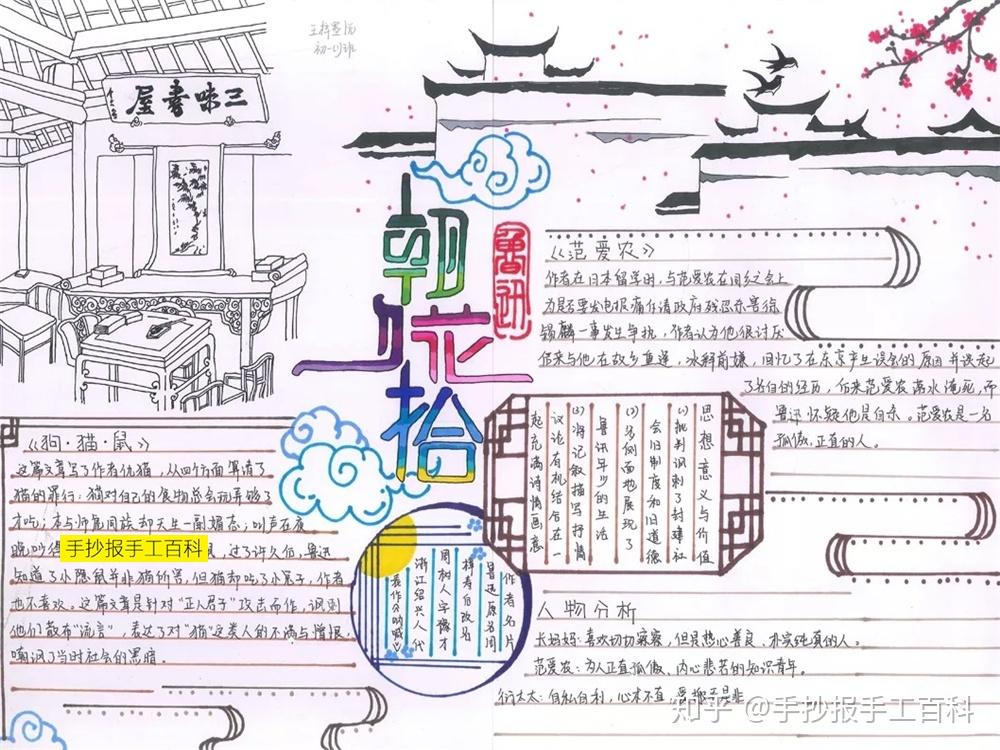 王梓墨涵
初一(1)班
三味書屋
朝花夕拾
鲁迅
《狗·猫·鼠》
这篇文章写了作者仇猫，从四个方面算清了
猫的罪行：猫对自己的食物总会玩弄够了
才吃；本与狮虎同族却天生一副媚态；叫声在夜
晚叫得
手抄报手工百科
，过了许久后，鲁迅
知道了小隐鼠并非猫所害，但猫却吃了小兔子，作者
也不喜欢。这篇文章是针对“正人君子”攻击而作，讽刺
他们散布“流言”，表达了对“猫”这类人的不满与憎恨，
嘲讽了当时社会的黑暗。
《范爱农》
作者在日本留学时，与范爱农在同乡会上
为是否要发电报痛斥清政府残忍杀害徐
锡麟一事发生争执，作者认为他很讨厌
后来与他在故乡重逢，冰释前嫌，回忆了在东京产生误会的原因并谈起
了各自的经历，后来范爱农落水淹死，而
鲁迅怀疑他是自杀。范爱农是一名
孤傲、正直的人。
思想意义与价值
(1)批判讽刺了封建社
会旧制度和旧道德
(2)多侧面地展现了
鲁迅年少的生活
(3)将记叙描写抒情
议论有机结合在一
起充满诗情画意
作者名片
鲁迅原名周
樟寿后改名
周树人字豫才
浙江绍兴人代
表作《呐喊》
人物分析
长妈妈：喜欢切切察察，但是热心善良、朴实纯真的人。
范爱农：为人正直孤傲、内心悲苦的知识青年。
衍太太：自私自利，心术不正，
知乎 @手抄报手工百科